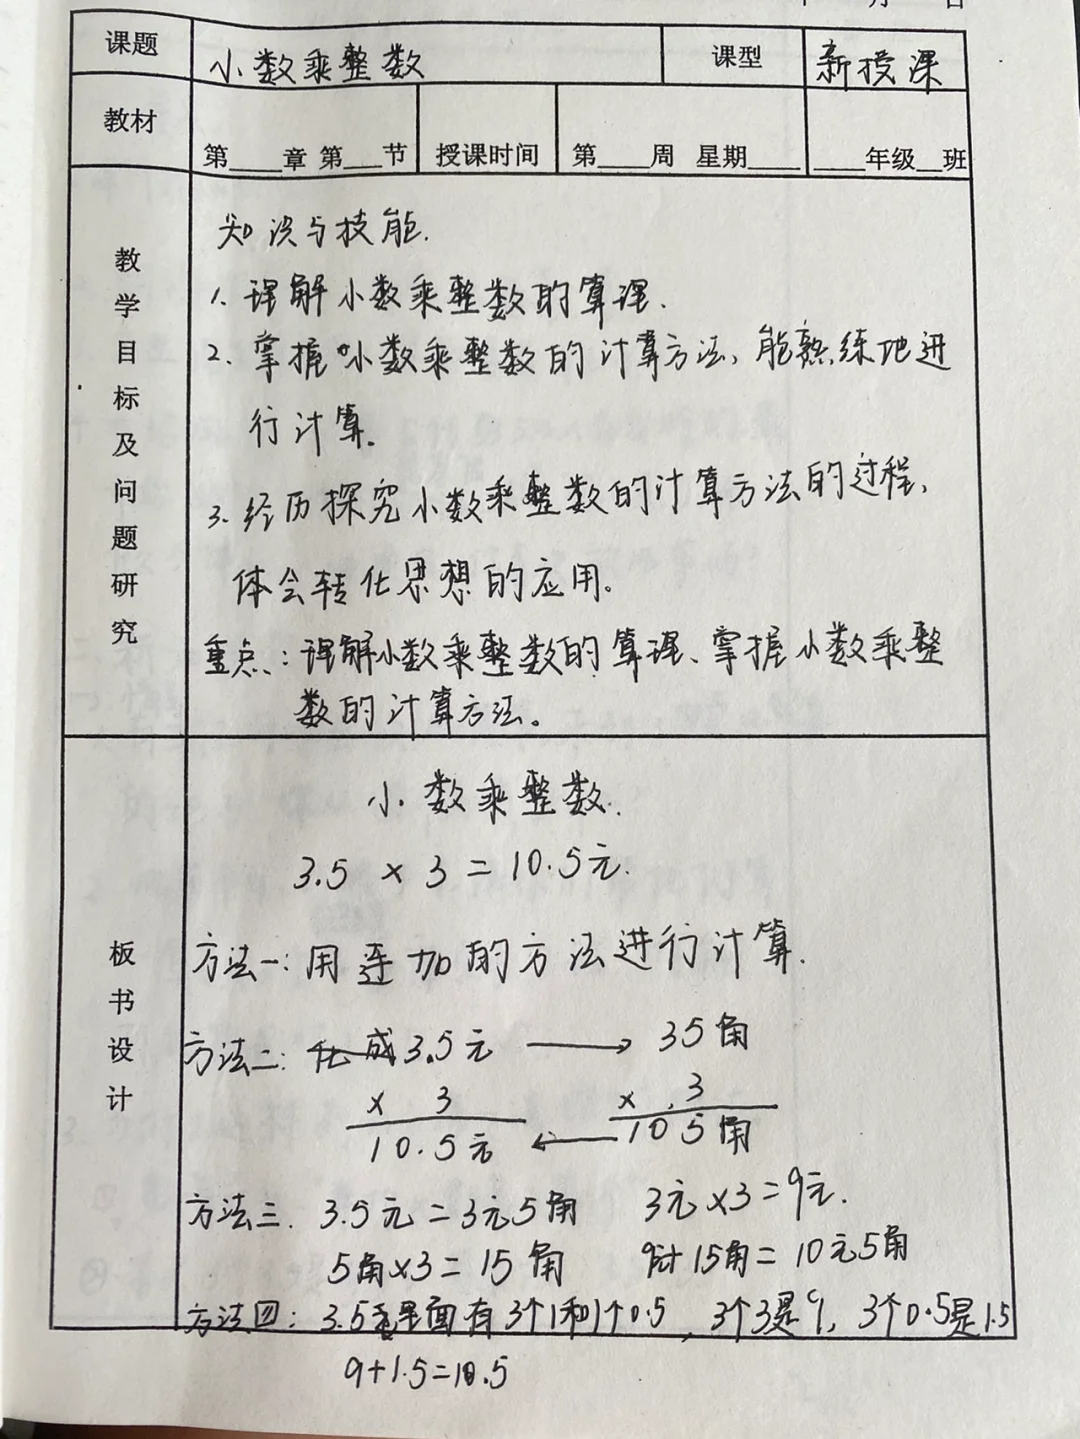 月 日
课题 小数乘整数 课型 新授课
教材 第____章 第___节 授课时间 第____周 星期____ ____年级__班
教学目标及问题研究
知识与技能.
1. 理解小数乘整数的算理.
2. 掌握小数乘整数的计算方法,能熟练地进
行计算.
3. 经历探究小数乘整数的计算方法的过程,
体会转化思想的应用。
重点:理解小数乘整数的算理、掌握小数乘整
数的计算方法。
板书设计
小数乘整数.
3.5 × 3 = 10.5元.
方法一:用连加的方法进行计算.
方法二: 3.5元 → 35角
× 3 × 3
10.5元 ← 105角
方法三. 3.5元=3元5角 3元×3=9元.
5角×3=15角 9元+15角=10元5角
方法四:3.5里面有3个1和1个0.5,3个3是9,3个0.5是1.5
9+1.5=10.5